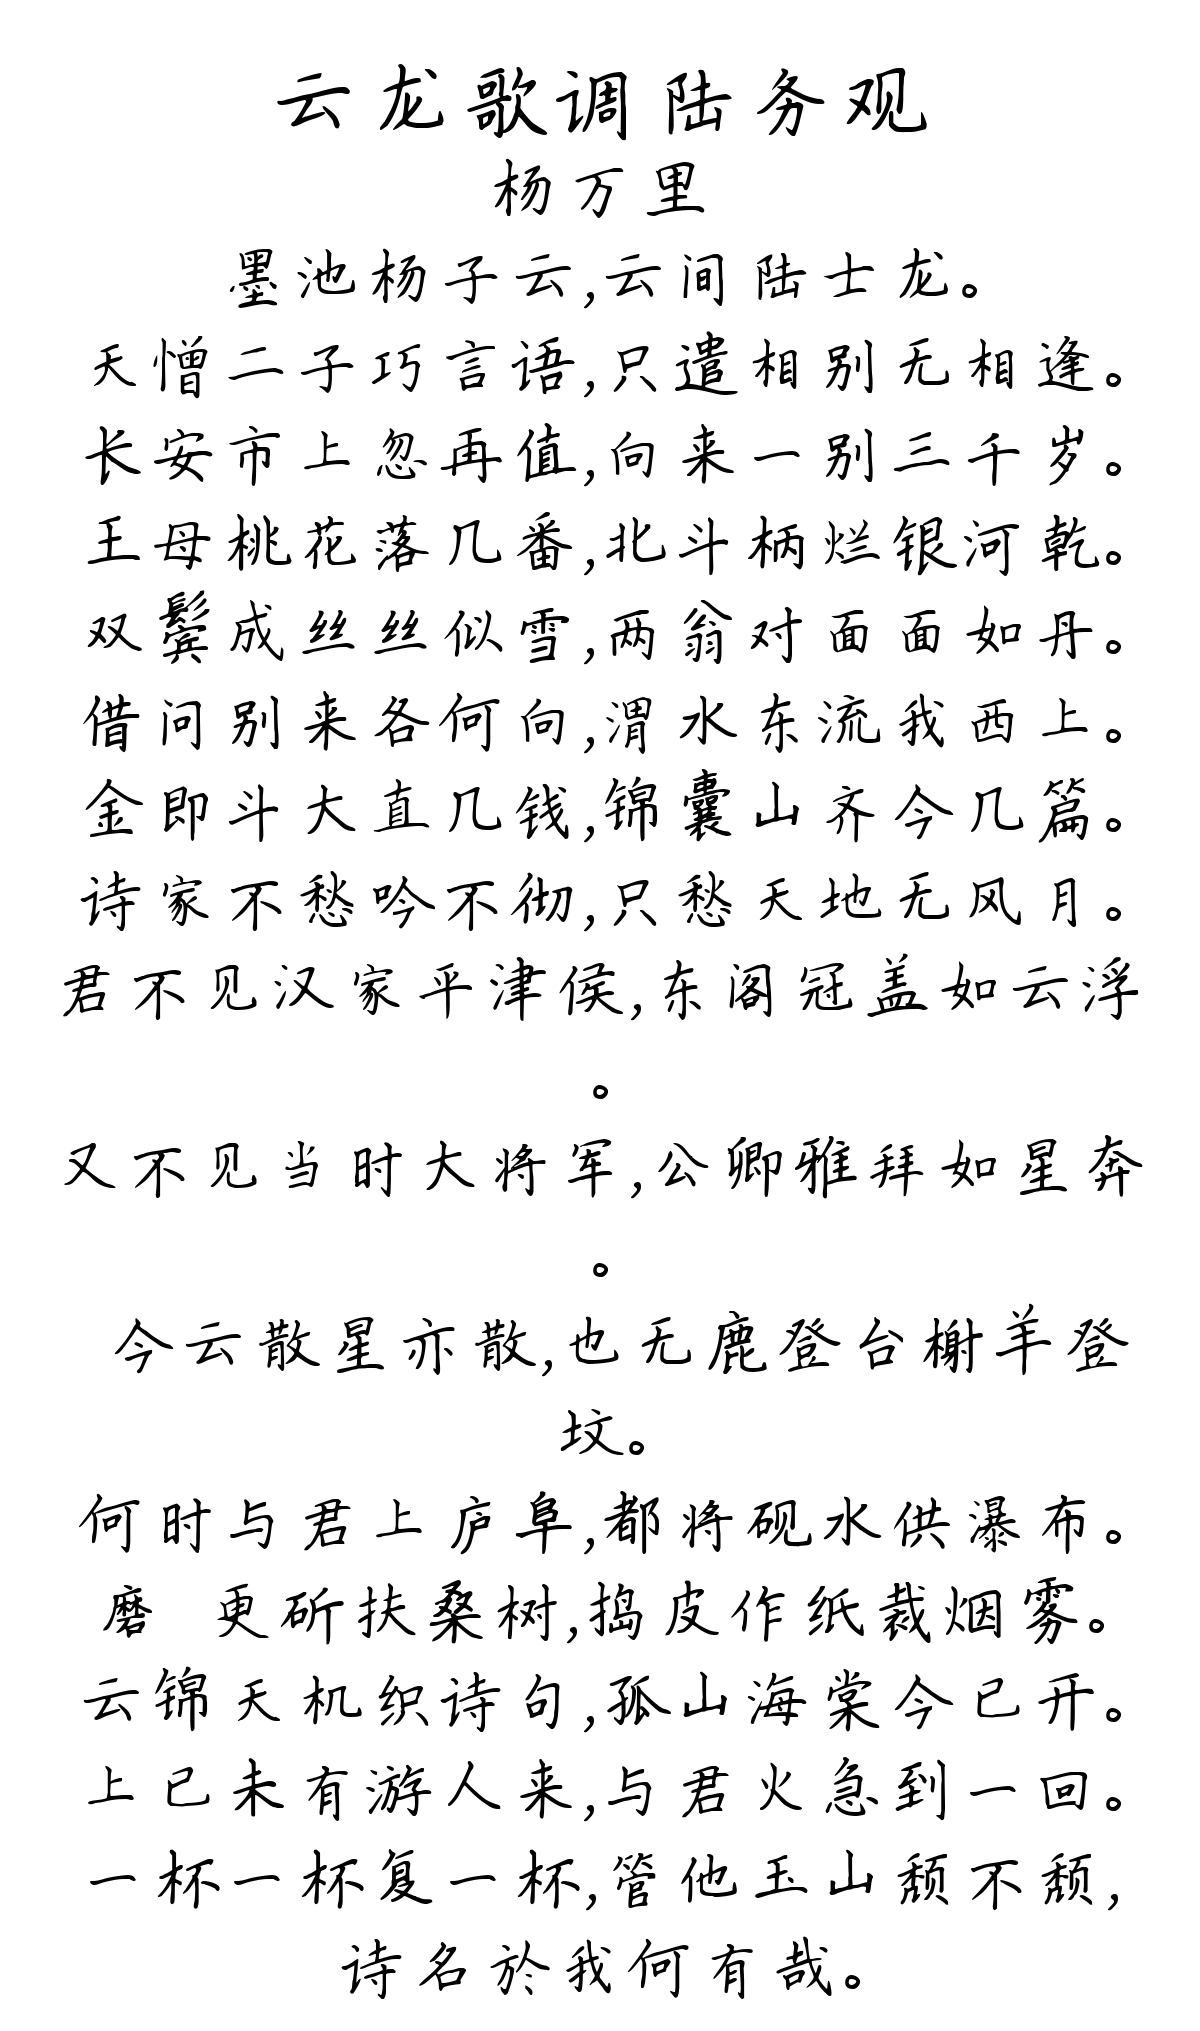 云龙歌调陆务观
杨万里
墨池杨子云,云间陆士龙。
天憎二子巧言语,只遣相别无相逢。
长安市上忽再值,向来一别三千岁。
王母桃花落几番,北斗柄烂银河乾。
双鬓成丝丝似雪,两翁对面面如丹。
借问别来各何向,渭水东流我西上。
金即斗大直几钱,锦囊山齐今几篇。
诗家不愁吟不彻,只愁天地无风月。
君不见汉家平津侯,东阁冠盖如云浮
。
又不见当时大将军,公卿雅拜如星奔
。
今云散星亦散,也无鹿登台榭羊登
坟。
何时与君上庐阜,都将砚水供瀑布。
磨 更斫扶桑树,捣皮作纸裁烟雾。
云锦天机织诗句,孤山海棠今已开。
上已未有游人来,与君火急到一回。
一杯一杯复一杯,管他玉山颓不颓,
诗名於我何有哉。